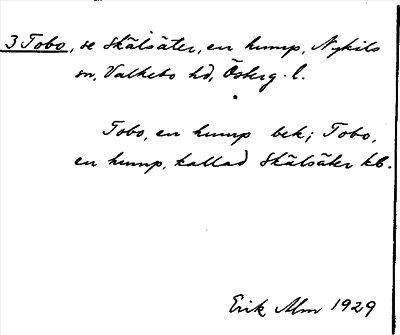 3 Tobo, se Skälsäter, en hemp, Nykils
sn, Valkebo hd, Österg. l.
Tobo, en hemp bek; Tobo,
en hemp, kallad Skälsäter kb.
Erik Alm 1929